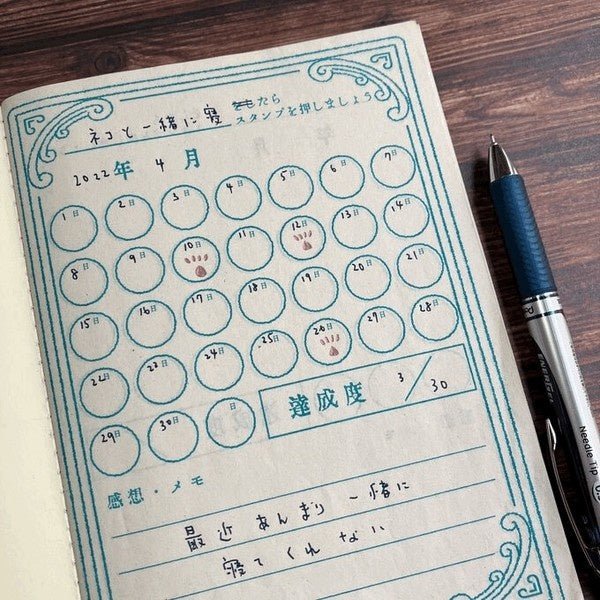 ネコと一緒に寝たら
スタンプを押しましょう
2022年 4月
1日 2日 3日 4日 5日 6日 7日
8日 9日 10日 11日 12日 13日 14日
15日 16日 17日 18日 19日 20日 21日
22日 23日 24日 25日 26日 27日 28日
29日 30日 日
達成度 3/30
感想・メモ
最近あんまり一緒に
寝てくれない
Needle Tip